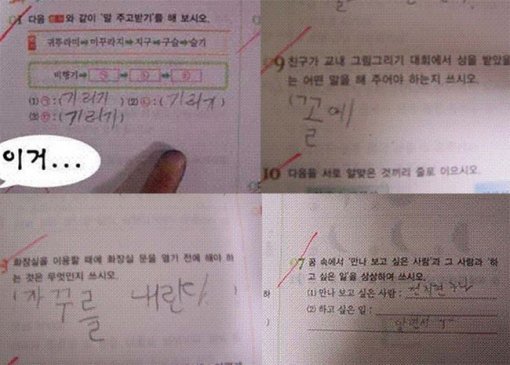 01 다음 보기와 같이 '말 주고받기'를 해 보시오.
귀뚜라미➡미꾸라지➡지구➡구슬➡슬기
비행기➡㉠➡㉡➡㉢
(1) ㉠:(기러기) (2) ㉡:(기러기)
(3) ㉢:(기러기)
이거...
9 친구가 교내 그림그리기 대회에서 상을 받았을
는 어떤 말을 해 주어야 하는지 쓰시오.
(꼴에
10 다음을 서로 알맞은 것끼리 줄로 이으시오.
3 화장실을 이용할 때에 화장실 문을 열기 전에 해야 하
는 것은 무엇인지 쓰시오.
(자꾸를 내린다)
07 꿈 속에서 '만나 보고 싶은 사람'과 그 사람과 '하
고 싶은 일'을 상상하여 쓰시오.
(1) 만나 보고 싶은 사람 : 전지현
(2) 하고 싶은 일 :